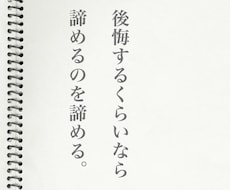 後悔するくらいなら
諦めるのを諦める。